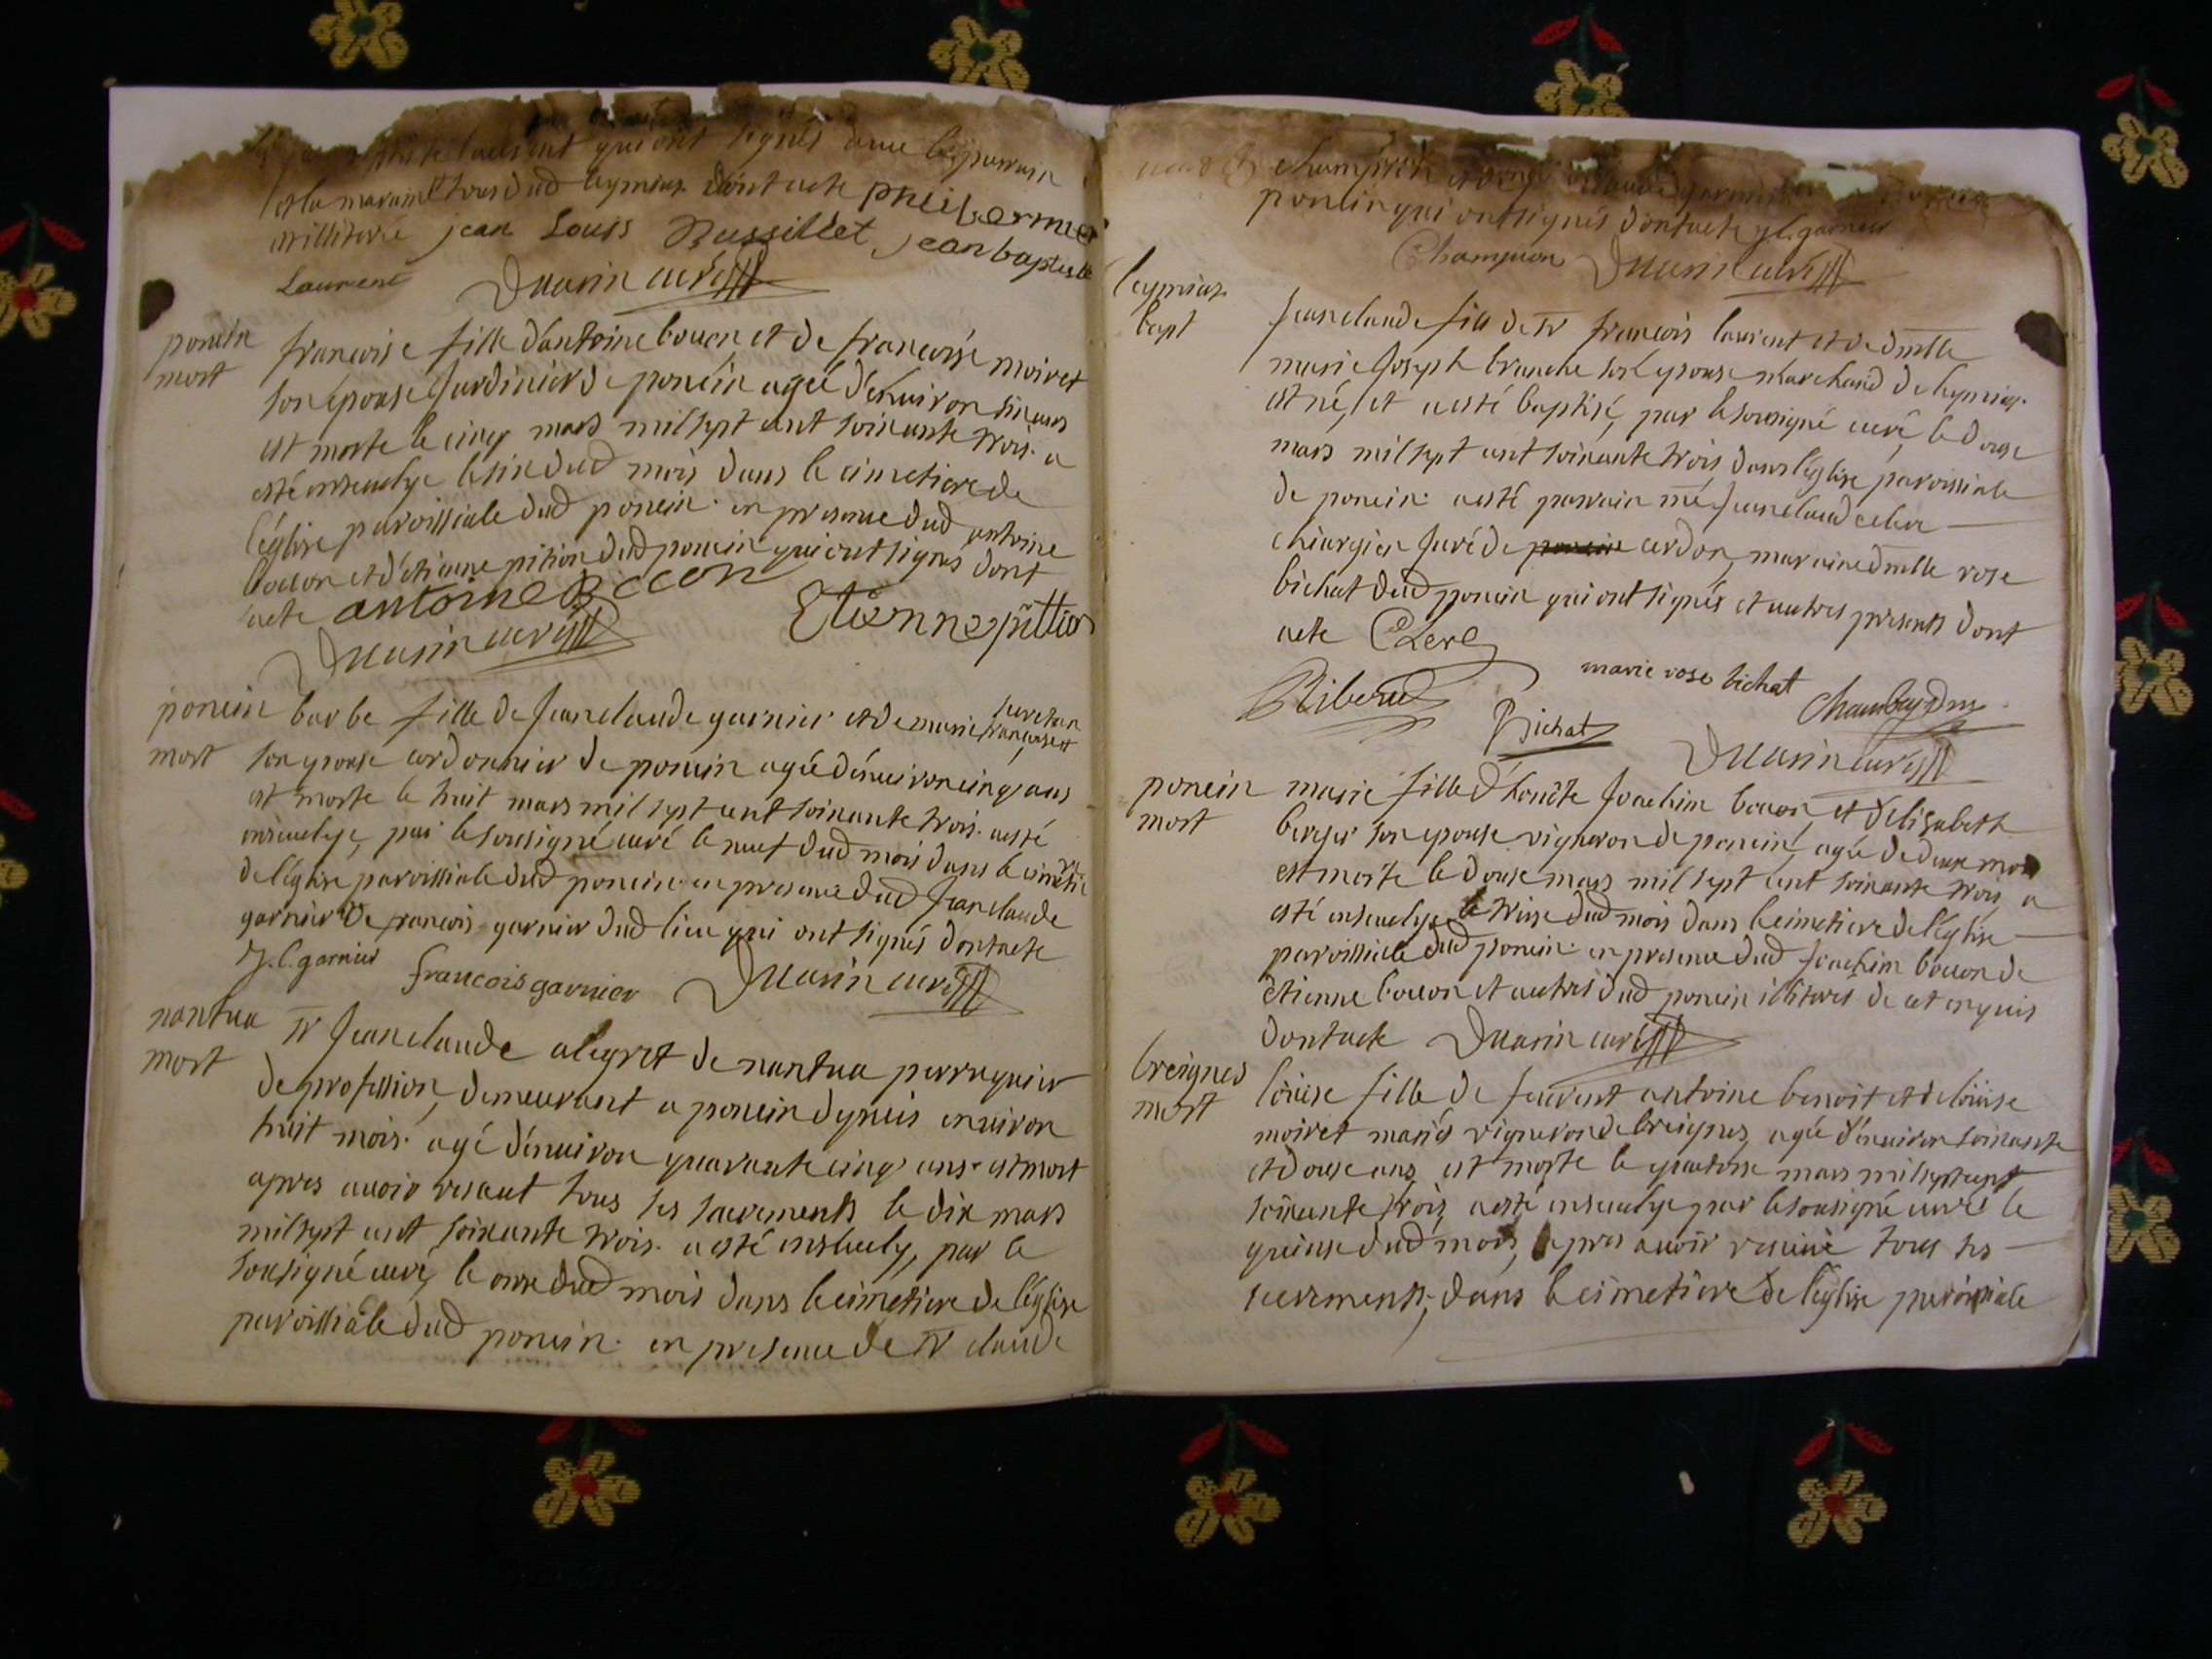 laurent qui ont signés avec le parrain
et la marain tous dud leymiat dont acte phili bermier
illitéré jean Louis Bussillet jean baptiste
Laurent Duarin curé
poncin
mort
francoise fille d'antoine bocon et de francoise moiret
son épouse Jardinier de poncin agée d'environ six ans
est morte le cinq mars mil sept cent soixante trois. a
esté ensevelye le six dud mois dans le cimetiere de
l'église paroissiale dud poncin. en presence dud antoine
bocon et d'etienne pition dud poncin qui ont signés dont
acte antoine Bocon Etienne pittion
Duarin curé
poncin
mort
barbe fille de Jeanclaude garnier et de marie francoise
son epouse cordonnier de poncin agée d'environ cinq ans
est morte le huit mars mil sept cent soixante trois. a esté
ensevelye, par le sousigné curé le neuf dud mois dans le cimetiere
de l'église paroissiale dud poncin. en presence dud Jeanclaude
garnier de francois garnier dud lieu qui ont signés dont acte
J. C. garnier francois garnier Duarin curé
nantua
mort
Sr Jeanclaude alegret de nantua perruquier
de profession, demeurant a poncin depuis environ
huit mois. agé d'environ quarante cinq ans. est mort
apres avoir receut tous ses sacrements le dix mars
mil sept cent soixante trois. a esté ensevely, par le
sousigné curé, le onse dud mois dans le cimetiere de l'église
paroissiale dud poncin. en presence de Sr claude
champion
poncin qui ont signés dont acte J. C. garnier
Champion Duarin curé
leymiat
bapt
Jeanclaude fils de Sr francois laurent et de dmlle
marie Joseph branche son epouse marchand de leymiat.
est né, et a esté baptisé, par le sousigné curé, le douse
mars mil sept cent soixante trois, dans l'église paroissiale
de poncin. a esté parrain mé Jeanclaud clerc
chirurgien Juré de poncin cerdon, maraine dmlle rose
bichat dud poncin qui ont signés et autres presents dont
acte Clerc
marie rose bichat
Riberud Bichat
Duarin curé
poncin
mort
marie fille d'honête Joachim bocon, et d'elisabeth
berger son epouse vigneron de poncin, agée de deux mois
est morte le douse mars mil sept cent soixante trois, a
esté ensevelye le treise dud mois dans le cimetiere de l'église
paroissiale dud poncin. en presence dud Joachim bocon de
etienne bocon et autres dud poncin illiterés de ce enquis
dont acte Duarin curé
breignes
mort
loüise fille de antoine benoit et de loüise
moiret mariés vigneron de breignes, agée d'environ soixante
et douse ans, est morte le quatorse mars mil sept cent
soixante trois, a esté ensevelye par le sousigné curé le
quinse dud mois, apres avoir receüe tous ses
sacrements, dans le cimetiere de l'église paroissiale